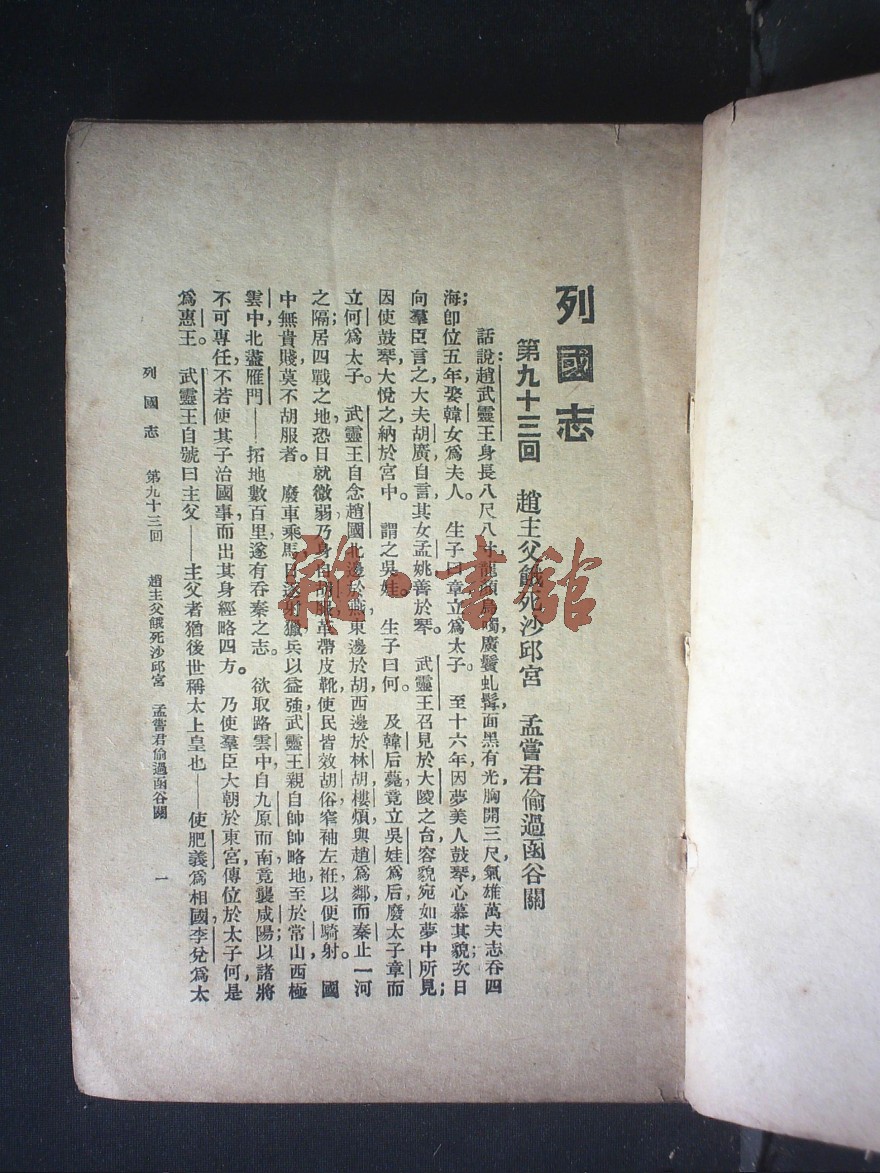 列國志
第九十三回　趙主父餓死沙邱宮　孟嘗君偷過函谷關
話說趙武靈王身長八尺八寸，龍顏鳥噣，廣鬢虬髯，面黑有光，胸開三尺，氣雄萬夫，志吞四
海；卽位五年，娶韓女爲夫人。　生子曰章，立爲太子。　至十六年，因夢美人鼓琴，心慕其貌；次日
向羣臣言之，大夫胡廣自言其女孟姚善於琴。　武靈王召見於大陵之台，容貌宛如夢中所見；
因使鼓琴，大悅之，納於宮中。　謂之吳娃。　生子曰何。　及韓后薨，竟立吳娃爲后，廢太子章而
立何爲太子。　武靈王自念趙國北邊於燕，東邊於胡，西邊於林胡，樓煩，與趙爲鄰，而秦止一河
之隔；居四戰之地，恐日就微弱，乃身自胡服，革帶皮靴，使民皆效胡俗，窄袖左衽，以便騎射。　國
中無貴賤，莫不胡服者。　廢車乘馬，日逐射獵，兵以益強，武靈王親自帥師略地，至於常山，西極
雲中，北盡雁門——拓地數百里，遂有吞秦之志。　欲取路雲中，自九原而南，竟襲咸陽；以諸將
不可專任，不若使其子治國事，而出其身經略四方。　乃使羣臣大朝於東宮，傳位於太子何，是
爲惠王。　武靈王自號曰主父——主父者，猶後世稱太上皇也——使肥義爲相國，李兌爲太
列國志　第九十三回　趙主父餓死沙邱宮　孟嘗君偷過函谷關　一
雅·書館